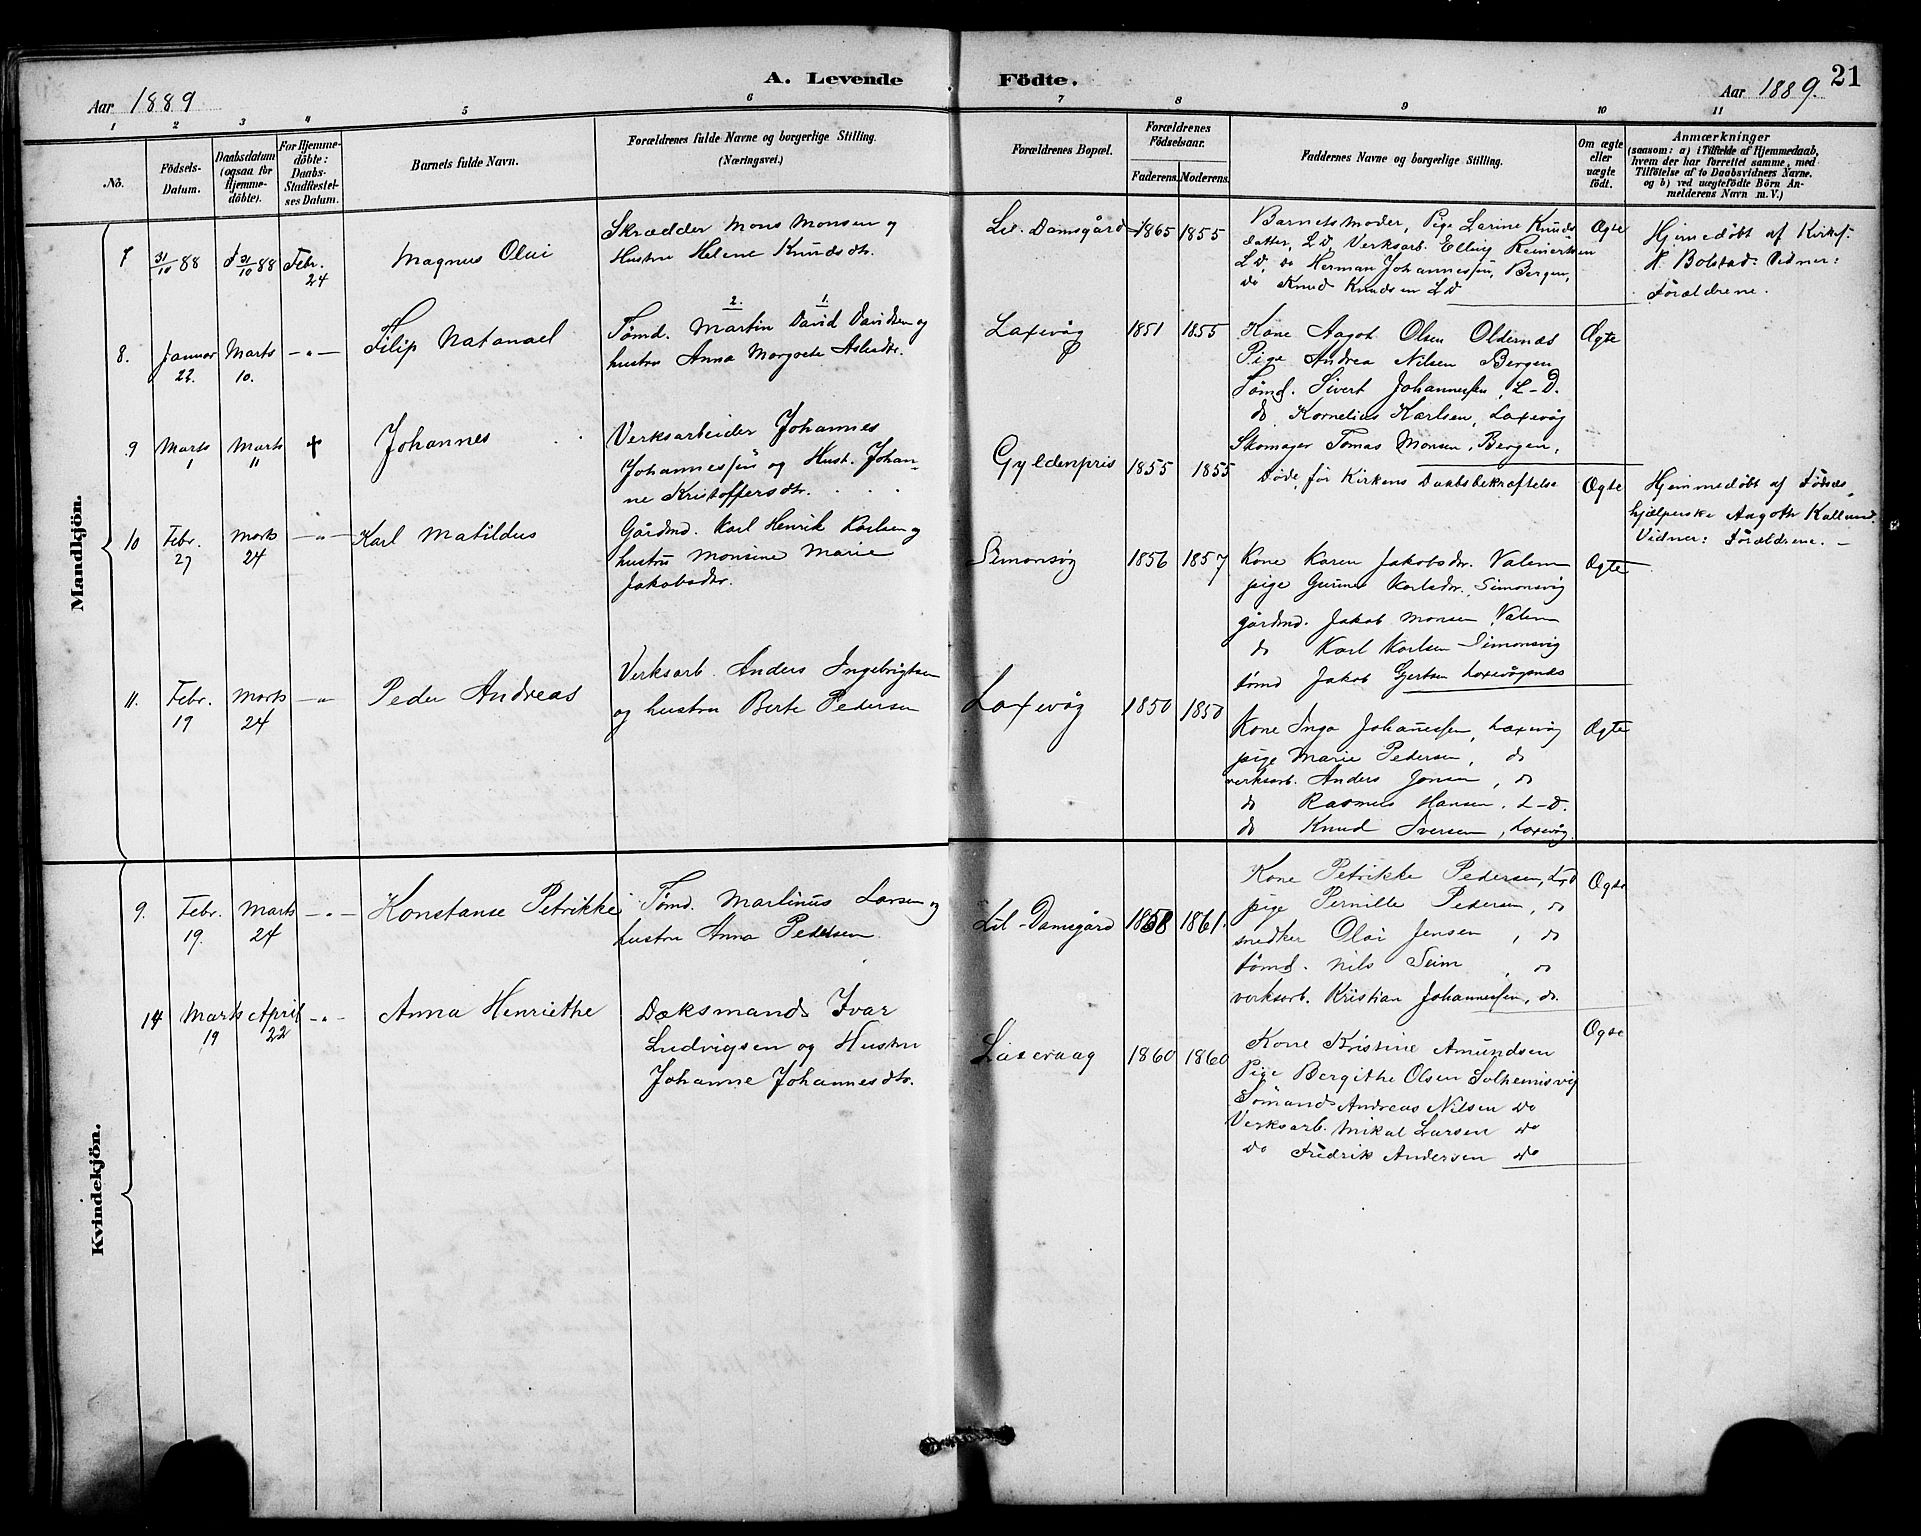 A. Levende Födte.
21
Aar 1889
Aar 1889.
1 2 3 4 5 6 7 8 9 10 11
No.
Födsels-Datum.
Daabsdatum (ogsaa for Hjemme-döbte).
For Hjemme-döbte: Daabs-Stadfæstel-ses Datum.
Barnets fulde Navn.
Forældrenes fulde Navne og borgerlige Stilling.
(Næringsvei.)
Forældrenes Bopæl.
Forældrenes Födselsaar.
Faderens. Moderens.
Faddernes Navne og borgerlige Stilling.
Om ægte eller uægte födt.
Anmærkninger
(saasom: a) i Tilfælde af Hjemmedaab,
hvem der har forrettet samme, med
Tilföielse af to Daabsvidners Navne.
og b) ved uægtefödte Börn An-
melderens Navn m. V.)
Mandkjön.
7 31/10 88 31/10 88 Febr. 24
Magnus Olai
Skrædder Mons Monsen og
Hustru Helene Knudsdtr.
Lil. Damsgård 1865 1855
Barnets moder, Pige Larine Knuds
datter, L D. Verksarb. Elling Reinertsen
L D, do Herman Johannessen, Bergen,
do Knud Knudsen L D
Ægte
Hjemmedøbt af Kirkes.
N. Bolstad. Vidner:
Forældrene.
8. Januar 22. Marts 10. — " —
Filip Natanael
2. 1.
Tømd. Martin David Davidsen og
hustru Anna Margrete Aslaksdtr.
Laxevåg 1851 1855
Kone Aagot Olsen Oldernæs
Pige Andrea Nilsen Bergen
Tømd. Sivert Johannessen, L-D.
do Kornelius Karlsen, Laxevåg
Skomager Tomas Monsen, Bergen,
Ægte
9 Marts 1 Marts 11 †
Johannes
Verksarbeider Johannes
Johannessen og Hust. Johan-
ne Kristoffersdtr.
Gyldenpris 1855 1855
Døde før Kirkens Daabsbekræftelse
Ægte
Hjemmedøbt af Fødsels-
hjælperske Aagoth Kalland.
Vidner: Forældrene. —
10 Febr. 27 Marts 24 — " —
Karl Matildus
Gårdmd. Karl Henrik Karlsen og
hustru Monsine Marie
Jakobsdtr.
Simonsvåg 1856 1857
Kone Karen Jakobsdtr. Valen
pige Gurine Karlsdtr. Simonsvig
gårdmd. Jakob Monsen Valen
do Karl Karlsen Simonsvig
tømd Jakob Gjertsen Laxevågsnæs
Ægte
11. Febr. 19 Marts 24 — " —
Peder Andreas
Verksarb. Anders Ingebrigtsen
og hustru Berte Pedersen
Laxevåg 1850 1850
Kone Inga Johannessen, Laxevåg
pige Marie Pedersen, do
verksarb. Anders Jonsen, do
do Rasmus Hansen. L-D.
do Knud Iversen, Laxevåg.
Ægte
Kvindekjön.
9. Febr. 19. Marts 24 — " —
Konstanse Petrikke
Tømd. Martinus Larsen og
hustru Anna Pedersen
Lil-Damsgård 1858 1861.
Kone Petrikke Pedersen, L-D
pige Pernille Pedersen, do
snedker Olai Jensen, do
tømd. Nils Seim, do
verksarb. Kristian Johannessen, do.
Ægte
14 Marts 19 April 22 — " —
Anna Henriethe
Dæksmand Ivar
Ludvigsen og Hustru
Johanne Johannesdtr.
Laxevaag 1860 1860
Kone Kristine Amundsen
Pige Bergithe Olsen Solheimsvig
Sømand Andreas Nilsen do
Verksarb. Mikal Larsen do
do Fredrik Andersen do
Ægte